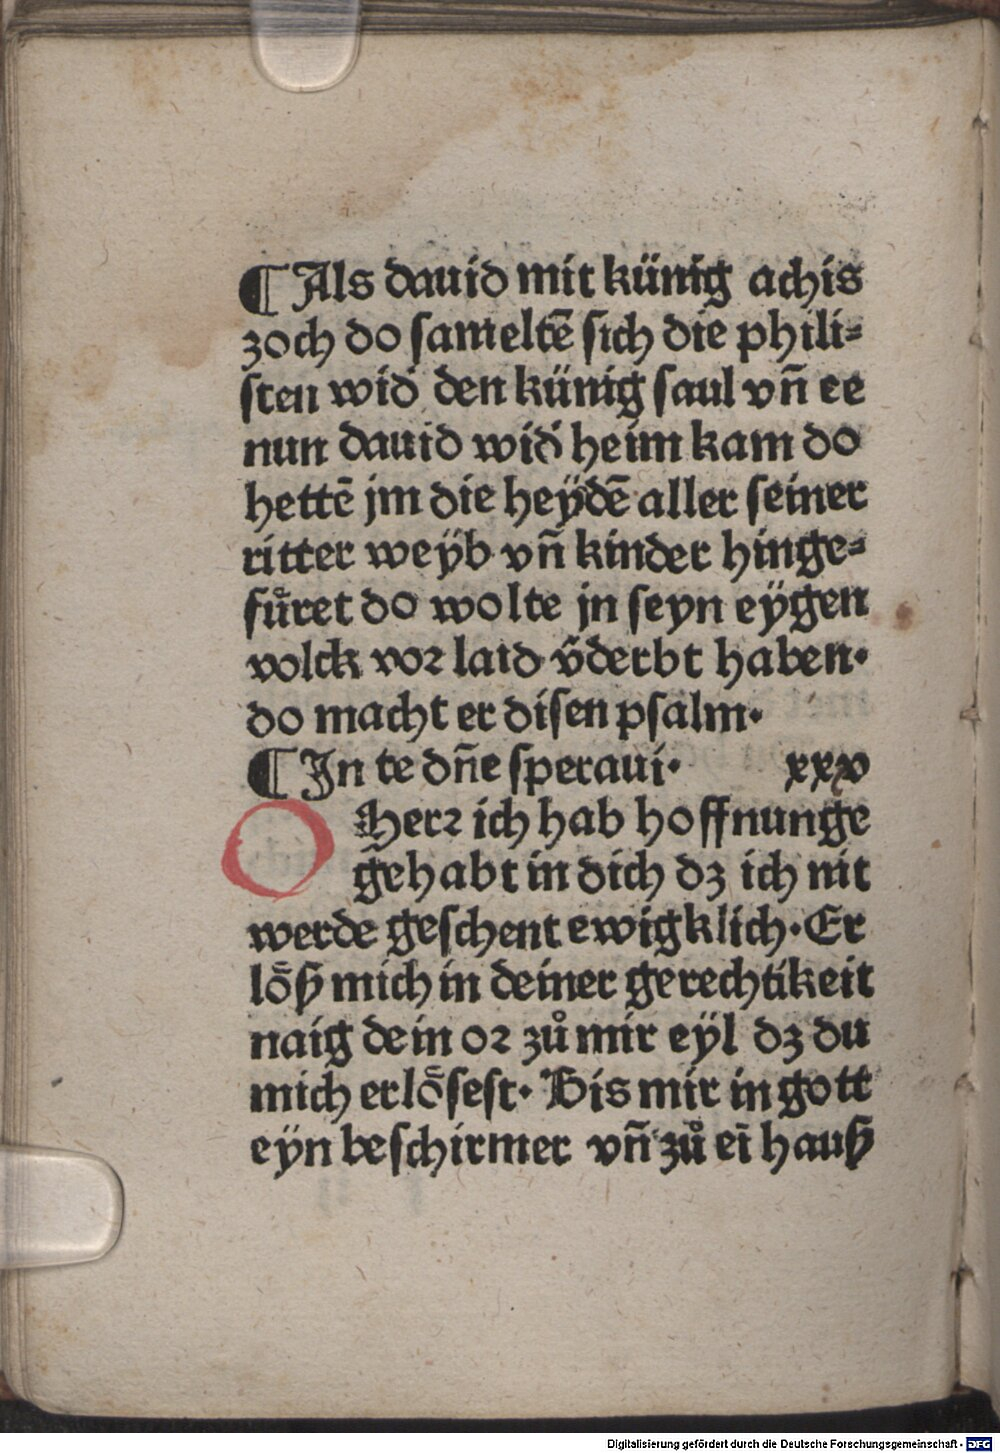 ¶ Als dauid mit künig achis
zoch do sameltē sich die phili⸗
sten wid̾ den künig saul vn̄ ee
nun dauid wid̾ heim kam do
hettē jm die heÿdē aller seiner
ritter weÿb vn̄ kinder hinge⸗
fu̇ret do wolte jn seyn eÿgen
volck voꝛ laid v̄derbt haben·
do macht er disen psalm·
¶ In te dn̄e speraui· xxxv
O Herꝛ ich hab hoffnunge
gehabt in dich dz ich nit
werde geschent ewigklich· Er
loͤß mich in deiner gerechtikeit
naig dein oꝛ zů mir eÿl dz du
mich erloͤsest· Bis mir in gott
eÿn beschirmer vn̄ zů eī hauß
Digitalisierung gefördert durch die Deutsche Forschungsgemeinschaft - DFG